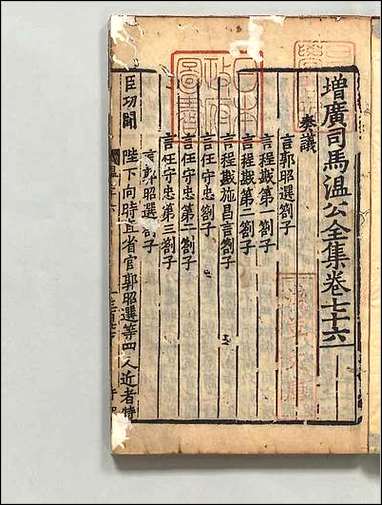 増廣司馬温公全集卷七十六
奏議
言郭昭選劄子
言程戡第一劄子
言程戡第二劄子
言程戡施昌言劄子
言任守忠劄子
言任守忠第二劄子
言任守忠第三劄子
言郭昭選劄子
臣切聞 陛下向時直省官郭昭選等四人近者特
日本政府圖書